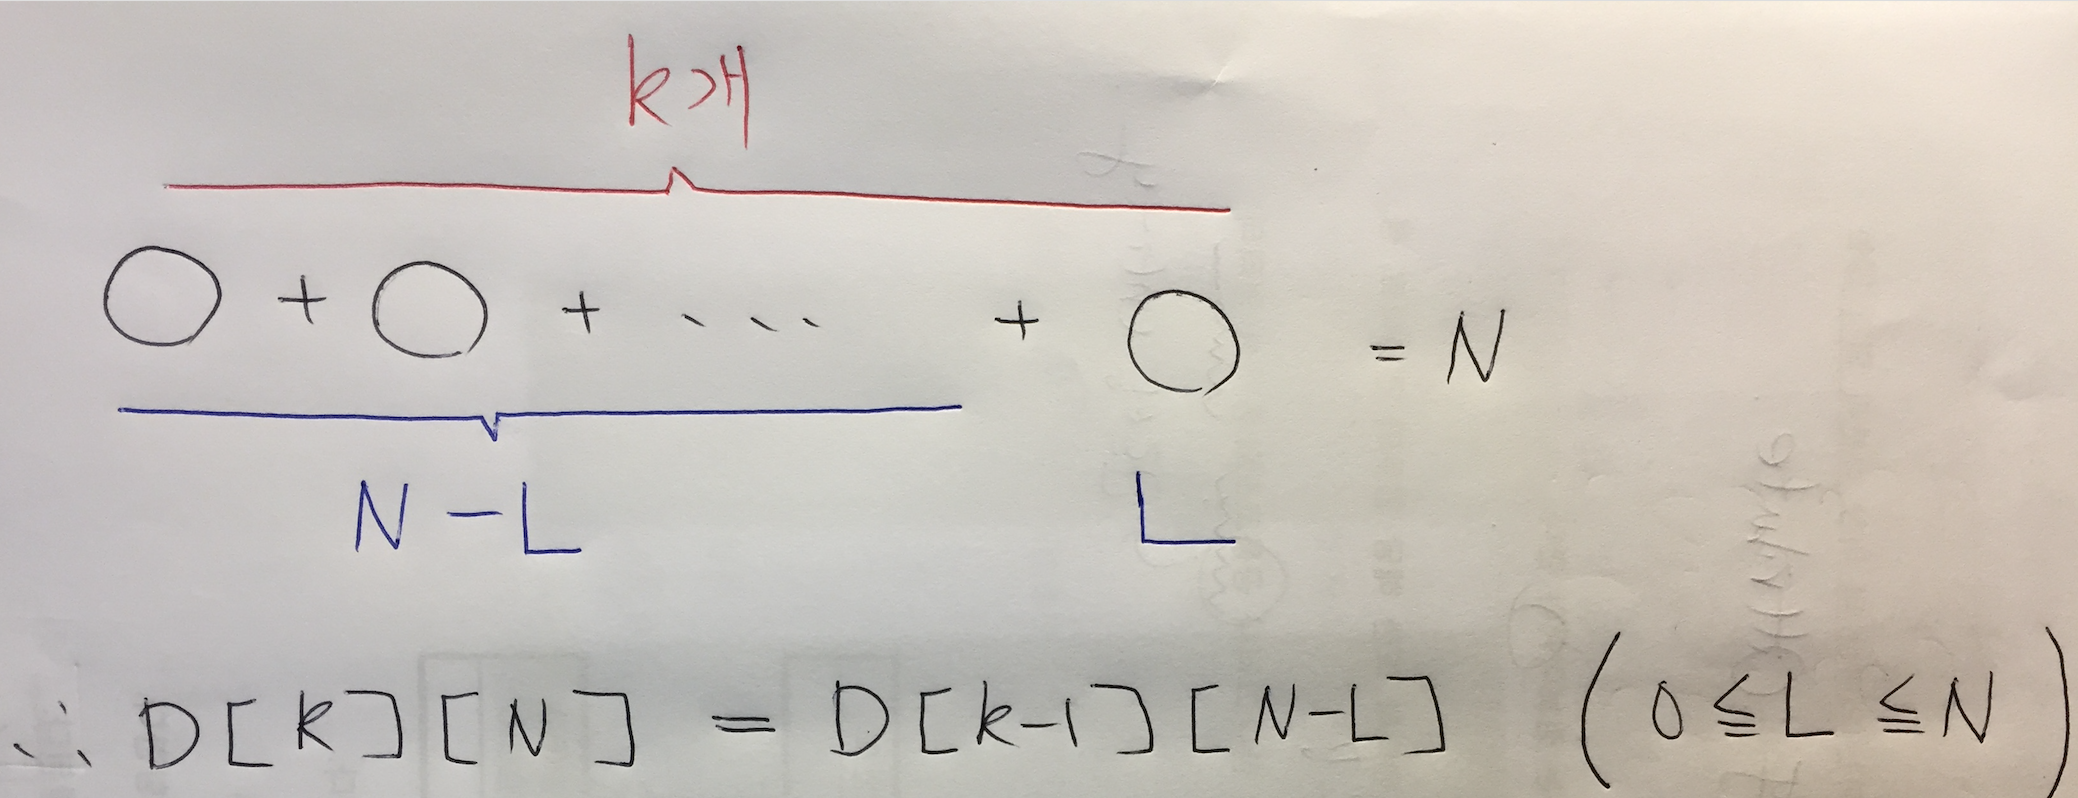 k개
○ + ○ + ... + ○ = N
N-L L
∴ D[k][N] = D[k-1][N-L] (0≦L≦N)